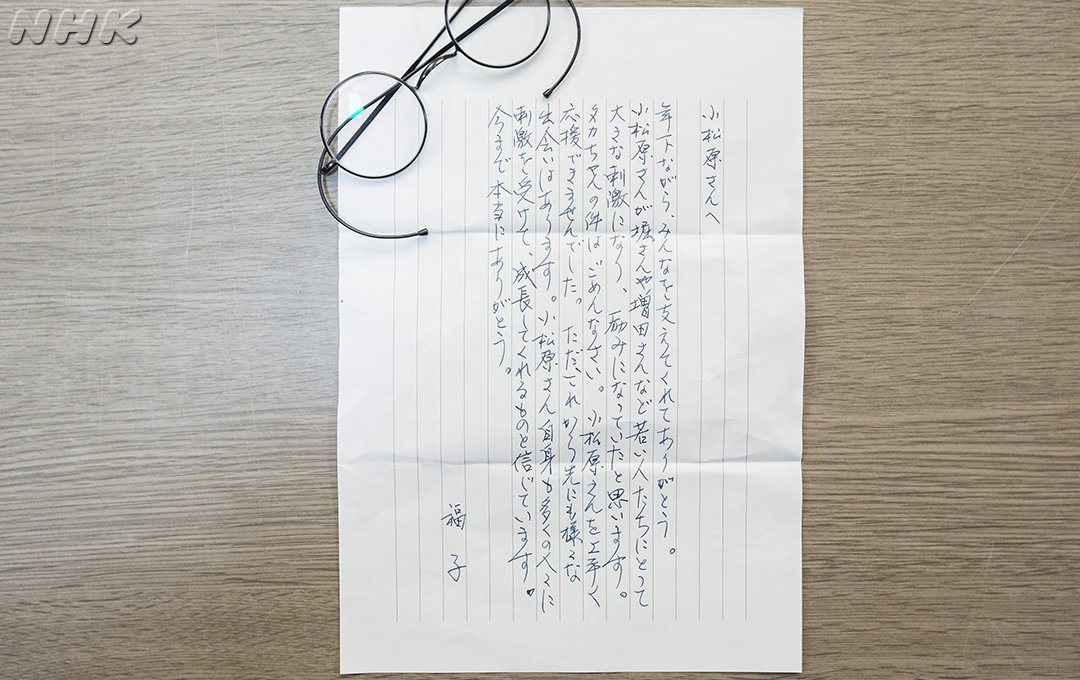 NHK
小松原さんへ
年下ながら、みんなを支えてくれてありがとう。
小松原さんが堀さんや増田さんなど若い人たちにとって
大きな刺激になり、励みになっていたと思います。
タカちゃんの件はごめんなさい。小松原さんを上手く
応援できませんでした。ただ、これから先にも様々な
出会いはあります。小松原さん自身も多くの人々に
刺激を受けて、成長してくれるものと信じています。
今まで本当にありがとう。
福子